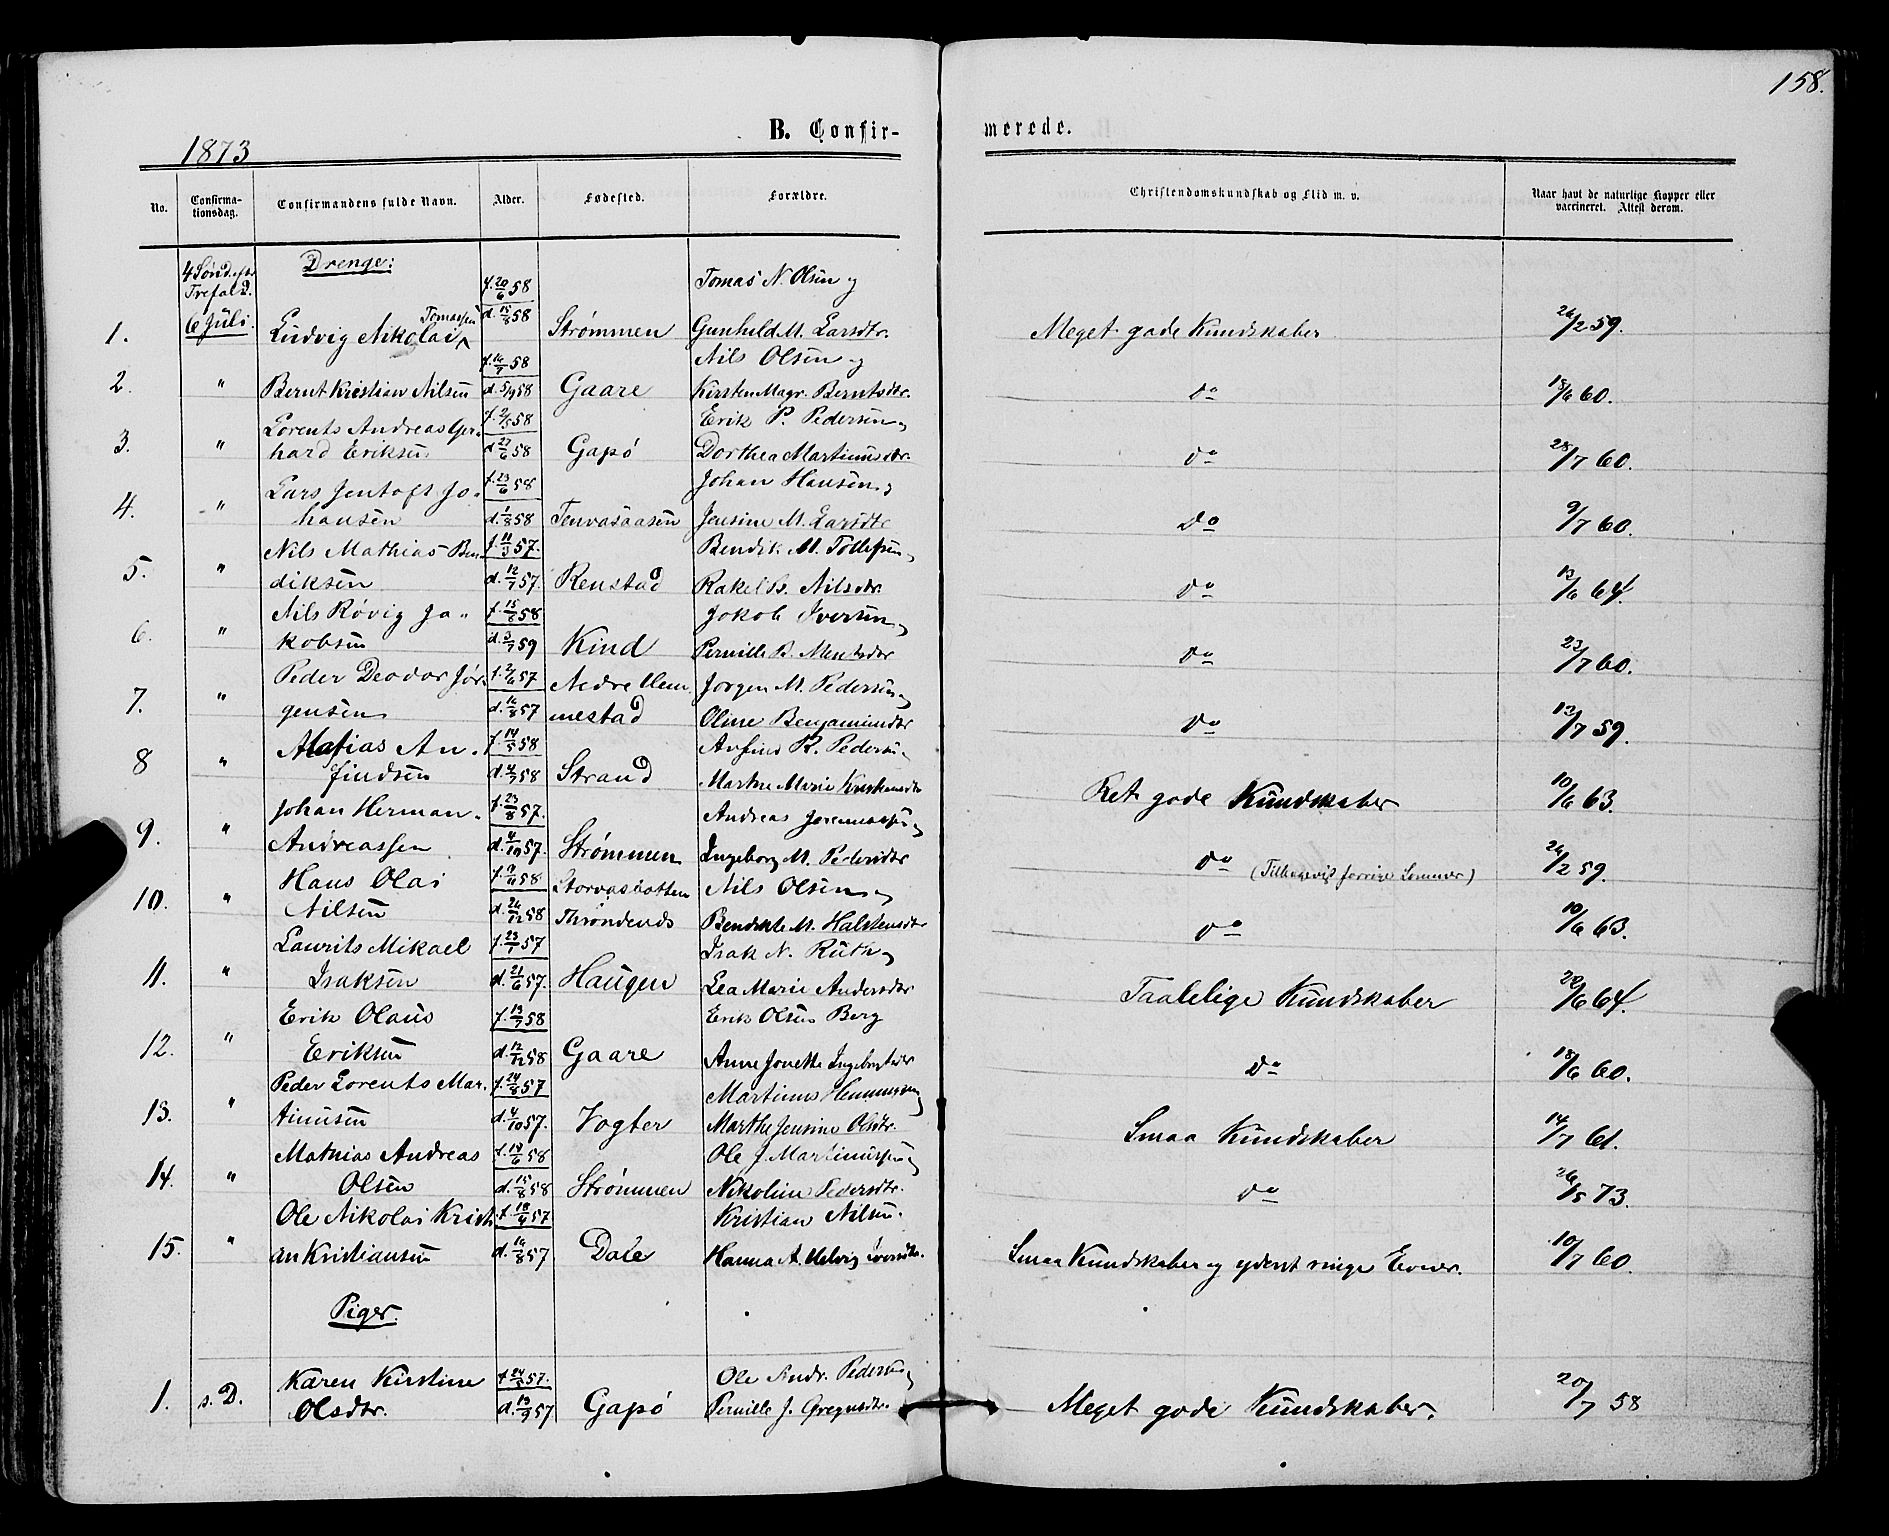 158.
1873
B. Confir-
merede.
No.
Confirma-
tionsdag.
Confirmandens fulde Navn.
Alder.
Fødested.
Forældre.
Christendomskundskab og Flid m. v.
Naar havt de naturlige Kopper eller
vaccineret. Attest derom.
4 Sønd. efter
Trefold.
6 Juli.
Drenge:
1. Ludvig Nikolai Tomassen f. 20/6 58 d. 15/8 58 Strømmen Tomas N. Olsen og
Gunhild M. Larsdtr. Meget gode Kundskaber 26/2 59.
2. " Bernt Kristian Nilsen f. 16/7 58
d. 5/9 58 Gaare Nils Olsen og
Kirsten Magr. Berntsdtr. do 18/6 60.
3. " Lorents Andreas Ger-
hard Eriksen f. 2/5 58
d. 27/6 58 Gapø Erik P. Pedersen og
Dorthea Martinusdtr. do 28/7 60.
4. " Lars Jentoft Jo-
hansen f. 23/6 58
d. 1/8 58 Johan Hansen og
Jensine M. Larsdtr do 9/7 60.
5. " Nils Mathias Ben-
diksen f. 11/3 57.
d. 12/7 57. Renstad Bendik M. Tollefsen og
Rakel B. Nilsdtr. do 13/6 64.
6. " Nils Røvig Ja-
kobsen f. 15/8 58
d. 3/7 59 Kind Jakob Iversen og
Pernille B. Mentsdtr do 23/7 60.
7. " Peder Deodor Jør-
gensen f. 2/6 57
d. 16/8 57 Nedre Hem
mestad Jørgen M. Pedersen og
Oline Benjaminsdtr do 13/7 59.
8 " Matias An-
findsen f. 14/5 58
d. 4/7 58 Strand Anfind R. Pedersen
Marthe Marie Kristensdtr Ret gode Kundskaber 10/6 63.
9. " Johan Herman
Andreassen f. 23/8 57.
d. 4/10 57. Strømmen Andreas Joremiassen og
Ingeborg M. Pedersdtr do (Tilbagevist forrige Sommer) 26/2 59.
10. " Hans Olai
Nilsen f. 9/11 58
d. 26/12 58 Storvasbotten
Throndenes Nils Olsen og
Bendikte M. Halstensdtr do 10/6 63.
11. " Laurits Mikael
Isaksen f. 23/1 57
d. 21/6 57. Haugen Isak N. Ruth og
Lea Marie Andersdtr Taalelige Kundskaber 22/6 64.
12. " Erik Olaus
Eriksen f. 13/7 58
d. 12/12 58 Gaare Erik Olsen Berg
Anne Jonette Ingebrigtsdtr do 18/6 60.
13. " Peder Lorents Mar-
tinusen f. 24/8 57
d. 4/10 57. Vogter Martinus Hemmingsen
Marthe Jensine Olsdtr. Smaa Kundskaber 14/7 61.
14. " Mathias Andreas
Olsen f. 19/6 58
d. 15/8 58 Strømmen Ole J. Martinussen og
Nikoline Pedersdtr. do 26/5 73.
15. " Ole Nikolai Kristi-
an Kristiansen f. 18/4 57
d. 16/8 57 Dale Kristian Nilsen.
Hanna A. Helvig Iversdtr. Smaa Kundskaber og yderst ringe Evner. 10/7 60.
Piger.
1. s. D. Karen Kirstine
Olsdtr. f. 24/5 57.
d. 13/9 57 Gapø Ole Andr. Pedersen og
Pernille J. Gregusdtr. Meget gode Kundskaber. 20/7 58